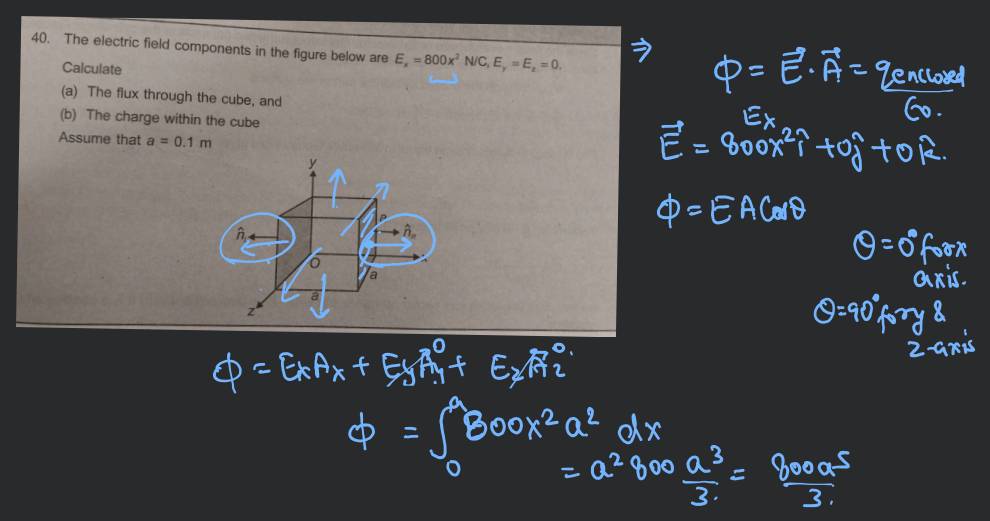 40. The electric field components in the figure below are Eₓ = 800x² N/C, Eᵧ = E_z = 0.
Calculate
(a) The flux through the cube, and
(b) The charge within the cube
Assume that a = 0.1 m
y
n̂
n̂
a
O
x
a
a
z
⇒
ϕ = E⃗ . A⃗ = qenclosed / ϵ₀.
Ex
E⃗ = 800x² î + 0ĵ + 0k̂.
ϕ = EA Cosθ
θ = 0° for x
axis.
θ = 90° for y &
z-axis
ϕ = ExAx + EyAy⁰ + EzAz⁰.
ϕ = ∫₀ᵃ 800x² a² dx
= a² 800 a³/3. = 800a⁵/3.